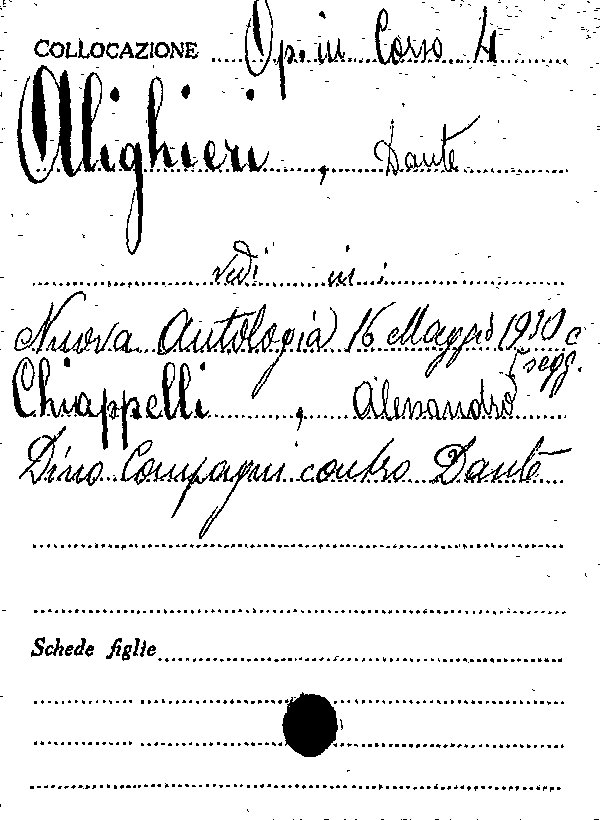 COLLOCAZIONE Op. in Corso 4
Alighieri, Dante
vedi in:
Nuova Antologia 16 Maggio 1930 e
segg.
Chiappelli, Alessandro
Dino Compagni contro Dante
Schede figlie